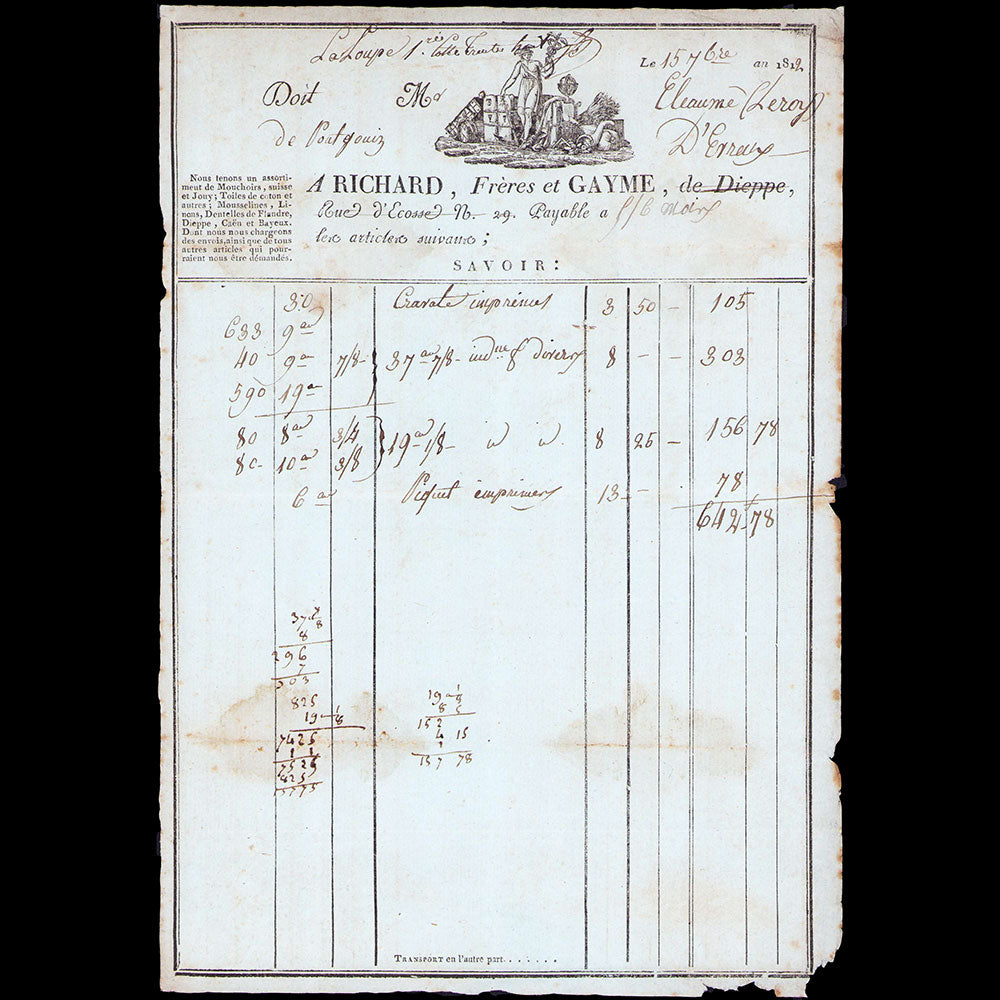 La Loupe 1.
Le 15 7bre an 1812
Doit Mr Eleaume (Leroy)
de Pontgouin D'Evreux
Nous tenons un assorti-
ment de Mouchoirs, suisse
et Jouy; Toiles de coton et
autres; Mousselines, Li-
nons, Dentelles de Flandre,
Dieppe, Caën et Bayeux.
Dont nous nous chargeons
des envois, ainsi que de tous
autres articles qui pour-
raient nous être demandés.
A RICHARD, Frères et GAYME, de Dieppe,
Rue d'Ecosse N. 29. Payable a 5/6 Mois
les articles suivans;
SAVOIR:
30 Cravate imprimés 3 50 - 105
633 9 au
40 9 au 7/8 } 37 au 7/8 indne f divers 8 - - 303
590 19 au
80 8 au 3/4 } 19 au 1/8 8 25 - 156 78
80 10 au 3/8
6 au Piquet imprimés 13 - 78
642 78
37 7/8
8
296
7
303
825
19 1/8
7425
1 1
7525
825
15775
19 1/8
8
152
4 15
1
157 78
TRANSPORT en l'autre part.......